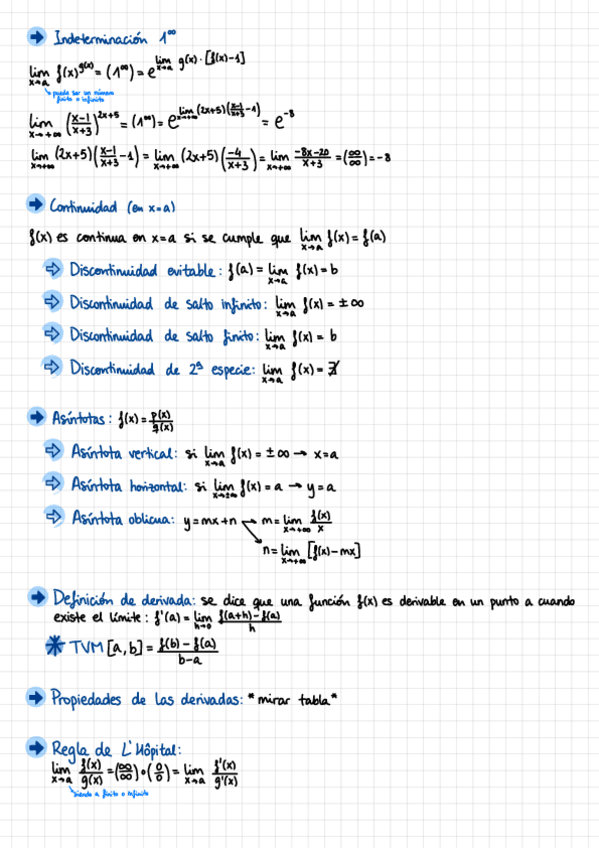 Indeterminación 1^∞
lim x→a f(x)^g(x) = (1^∞) = e^lim x→a g(x) · [f(x)-1]
puede ser un número
finito o infinito
lim x→+∞ (x-1/x+3)^2x+5 = (1^∞) = e^lim x→+∞ (2x+5)(x-1/x+3 -1) = e^-8
lim x→+∞ (2x+5)(x-1/x+3 -1) = lim x→+∞ (2x+5)(-4/x+3) = lim x→+∞ -8x-20/x+3 = (∞/∞) = -8
Continuidad (en x=a)
f(x) es continua en x=a si se cumple que lim x→a f(x) = f(a)
Discontinuidad evitable: f(a) = lim x→a f(x) = b
Discontinuidad de salto infinito: lim x→a f(x) = ±∞
Discontinuidad de salto finito: lim x→a f(x) = b
Discontinuidad de 2ª especie: lim x→a f(x) = ∄
Asíntotas: f(x) = p(x)/q(x)
Asíntota vertical: si lim x→a f(x) = ±∞ → x=a
Asíntota horizontal: si lim x→±∞ f(x) = a → y=a
Asíntota oblicua: y=mx+n → m = lim x→+∞ f(x)/x
n = lim x→+∞ [f(x)-mx]
Definición de derivada: se dice que una función f(x) es derivable en un punto a cuando
existe el límite: f'(a) = lim h→0 f(a+h)-f(a)/h
* TVM [a,b] = f(b)-f(a)/b-a
Propiedades de las derivadas: *mirar tabla*
Regla de L'Hôpital:
lim x→a f(x)/g(x) = (∞/∞) o (0/0) = lim x→a f'(x)/g'(x)
siendo a finito o infinito